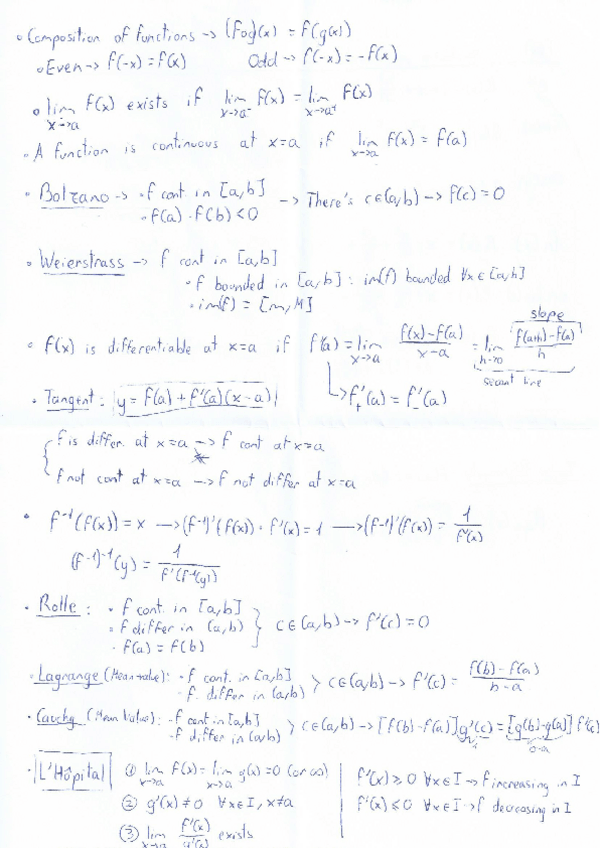 • Composition of functions → (fog)(x) = f(g(x))
• Even → f(-x) = f(x)    Odd → f(-x) = -f(x)
• lim x→a f(x) exists if lim x→a⁻ f(x) = lim x→a⁺ f(x)
• A function is continuous at x=a if lim x→a f(x) = f(a)
• Bolzano → · f cont. in [a,b] → There's c∈(a,b) → f(c) = 0
· f(a) · f(b) < 0
• Weierstrass → f cont in [a,b]
· f bounded in [a,b] : im(f) bounded ∀x∈[a,b]
· im(f) = [m, M]
slope
• f(x) is differentiable at x=a if f'(a) = lim x→a (f(x)-f(a))/(x-a) = lim h→0 (f(a+h)-f(a))/h
secant line
• Tangent: y = f(a) + f'(a)(x-a)    ↳ f'₊(a) = f'(a)
f is differ. at x=a → f cont at x=a
f not cont at x=a → f not differ at x=a
• f⁻¹(f(x)) = x → (f⁻¹)'(f(x)) · f'(x) = 1 → (f⁻¹)'(f(x)) = 1/f'(x)
(f⁻¹)⁻¹(y) = 1/f'(f⁻¹(y))
• Rolle : · f cont. in [a,b]
· f differ in (a,b) } c∈(a,b) → f'(c) = 0
· f(a) = f(b)
• Lagrange (Mean value): · f cont. in [a,b]
· f. differ in (a,b) > c∈(a,b) → f'(c) = (f(b)-f(a))/(b-a)
• Cauchy (Mean Value): · f cont in [a,b]
· f differ in (a,b) > c∈(a,b) → [f(b)-f(a)]g'(c) = [g(b)-g(a)] f'(c)
• L'Hôpital ① lim x→a f(x) = lim x→a g(x) = 0 (or ∞)
② g'(x) ≠ 0 ∀x∈I, x≠a
③ lim x→a f'(x)/g'(x) exists
f'(x) ≥ 0 ∀x∈I → f increasing in I
f'(x) ≤ 0 ∀x∈I → f decreasing in I